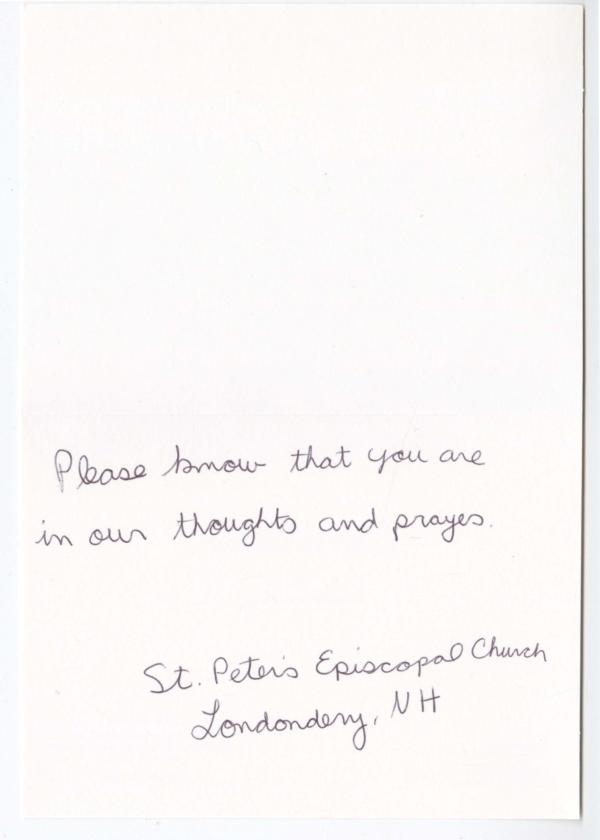 Please know that you are
in our thoughts and prayes.
St. Peter's Episcopal Church
Londonderry, NH